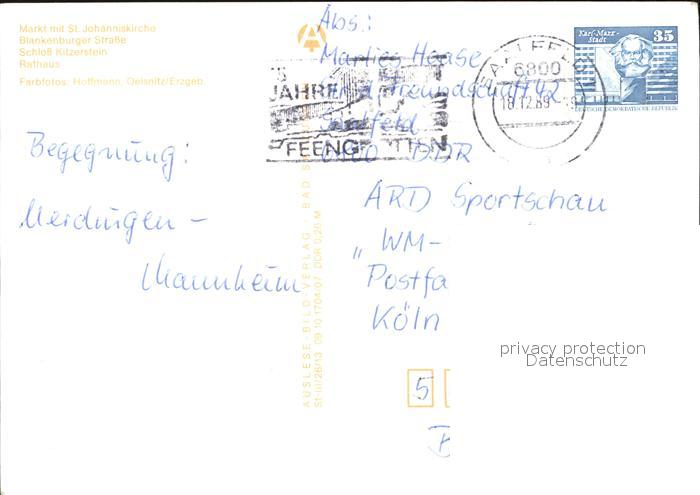 Markt mit St. Johanniskirche
Blankenburger Straße
Schloß Kitzerstein
Rathaus
Farbfotos: Hoffmann, Oelsnitz/Erzgeb.
Abs.:
Marlies Haase
freundschaft 42
Saalfeld
DDR
JAHRE
FEENGROTTEN
SAALFELD
6800
18.12.89
Karl-Marx-
Stadt
35
DEUTSCHE DEMOKRATISCHE REPUBLIK
Begegnung:
Merdingen –
Mannheim
ARD Sportschau
„WM-
Postfa
Köln
5
AUSLESE-BILD-VERLAG · BAD S
St-III/26/13 09 10 1704/07 DDR 0,20 M
privacy protection
Datenschutz